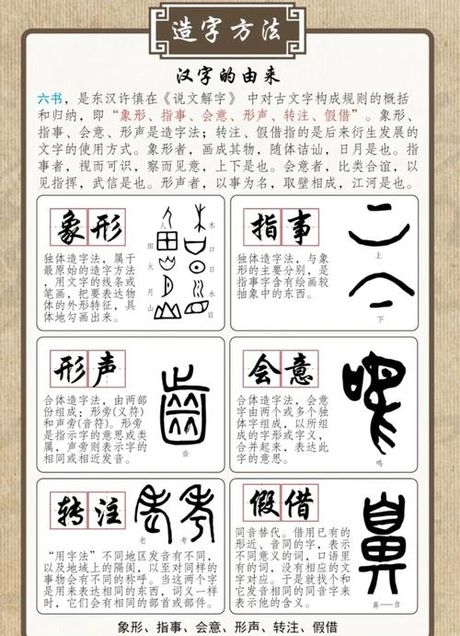 造字方法
汉字的由来
六书，是东汉许慎在《说文解字》中对古文字构成规则的概括
和归纳，即“象形、指事、会意、形声、转注、假借”。象形、
指事、会意、形声是造字法；转注、假借指的是后来衍生发展的
文字的使用方式。象形者，画成其物，随体诘诎，日月是也。指
事者，视而可识，察而见意，上下是也。会意者，比类合谊，以
见指挥，武信是也。形声者，以事为名，取譬相成，江河是也。
象形
独体造字法，属于
最原始的造字方法
，用文字的线条或
笔画，把要表达物
体的外形特征，具
体地勾画出来。
人
田
火
月
山
木
口
日
目
水
指事
独体造字法，与象
形的主要分别，是
指事字含有绘画较
抽象中的东西。
上
下
形声
合体造字法，由两部
份组成：形旁(义符)
和声旁(音符)。形旁
是指示字的意思或类
属，声旁则表示字的
相同或相近发音。
齿
会意
合体造字法，会意
字由两个或多个独
体字组成，以所组
成的字形或字义，
合并起来，表达此
字的意思。
鸣
转注
老
考
“用字法”不同地区发音有不同，
以及地域上的隔阂，以至对同样的
事物会有不同的称呼。当这两个字
是用来表达相同的东西，词义一样
时，它们会有相同的部首或部件。
假借
同音替代。借用已有的
形近、音同的字，表示
不同意义的词，口语里
有的词，没有相应的文
字对应。于是就找个和
它发音相同的同音字来
表示他的含义。
鼻——自
象形、指事、会意、形声、转注、假借